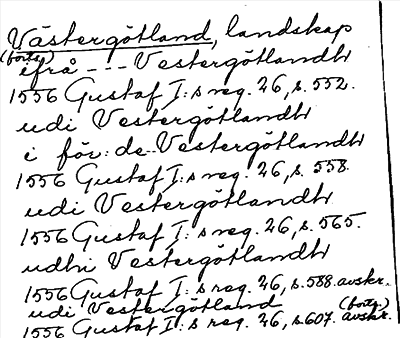 Västergötland, landskap
(forts.)
ifrå --- Vestergötlandh
1556 Gustaf I:s reg. 26, s. 552.
udi Vestergötlandh
i för: de Vestergötlandh
1556 Gustaf I:s reg. 26, s. 558.
udi Vestergötlandh
1556 Gustaf I:s reg. 26, s. 565.
udhi Vestergötlandh
1556 Gustaf I:s reg. 26, s. 588. avskr.
udi Vestergötland (forts.)
1556 Gustaf I:s reg. 26, s. 607. avskr.